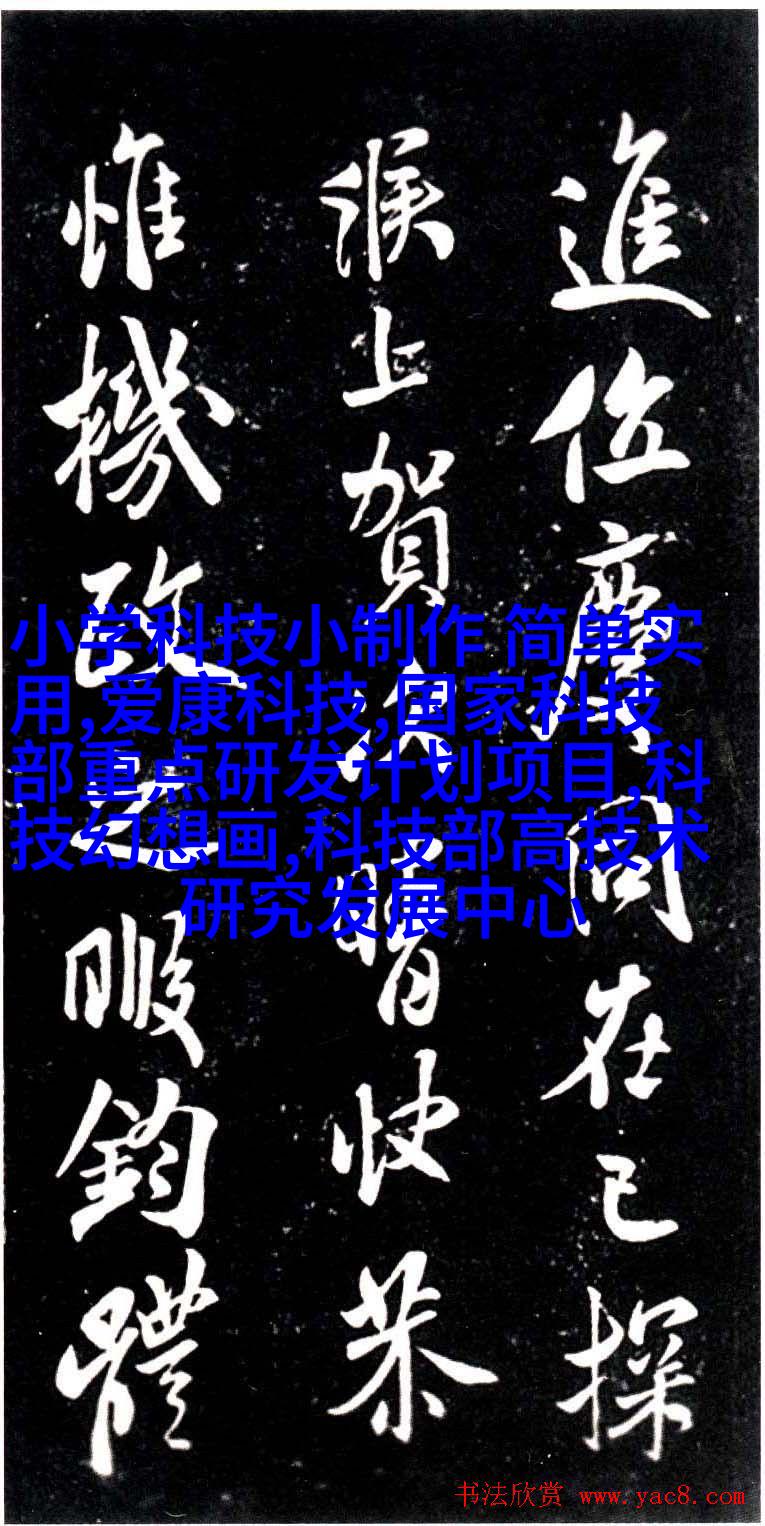 進位慶同在己探
候上賀次晴快恭
惟機政之暇鈞體
小学科技小制作 简单实
用,爱康科技,国家科技
部重点研发计划项目,科
技幻想画,科技部高技术
研究发展中心
书法欣赏 www.yac8.com